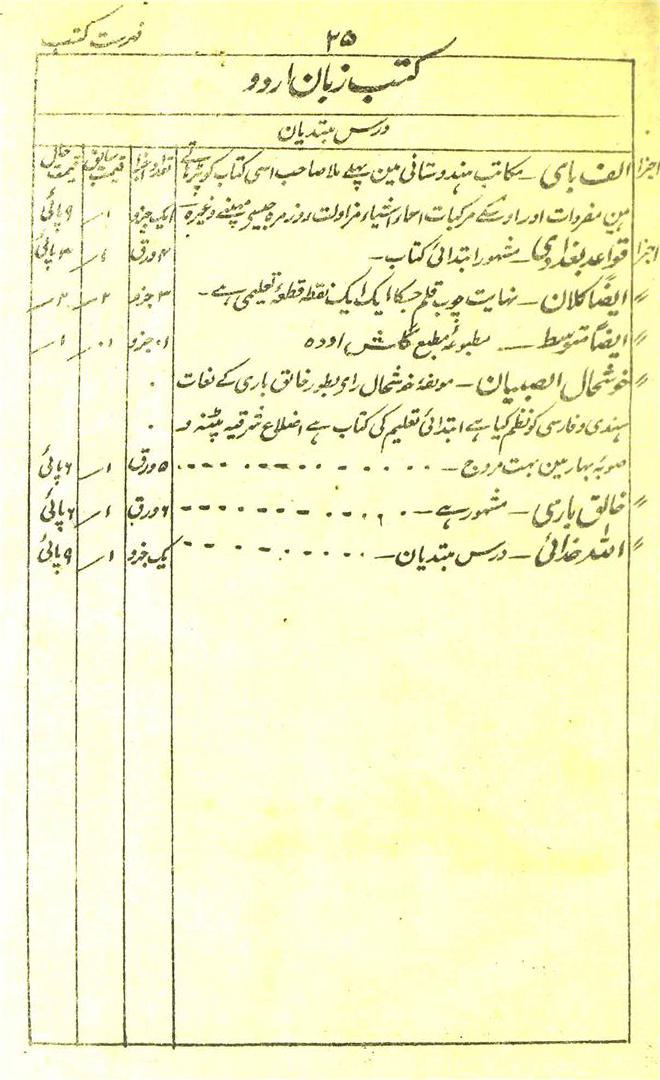 فہرست کتب
۲۵
کتب زبان اردو
درس مبتدیان
اجزا الف بای – مکاتب ہندوستانی مین پہلے ملا صاحب اسی کتاب کو پڑہاتے تعداد اجزا قیمت سابق قیمت حال
ہین مفردات اور اوسکے مرکبات اسماء اشیاء مزاولت روزمرہ جیسی مہینے وغیرہ – ایک جزو ۱؍ ۹ پائی
اجزا قواعد بغدادی – مشہور ابتدائی کتاب – ۴ ورق ۱؍ ۳ پائی
〃 ایضاً کلان – نہایت خوب قلم جسکا ایک ایک نقطہ قطعہ تعلیمی ہے – ۳ جزو ۲؍ ۲؍
〃 ایضاً متوسط – مطبوعہ مطبع اودہ جزو
〃 خوشحال الصبیان – مولفہ خوشحال رای بطور خالق باری کے لغات
ہندی و فارسی کو نظم کیا ہے ابتدائی تعلیم کی کتاب ہے اضلاع شرقیہ پٹنہ و
صوبہ بہار مین بہت مروج – ۵ ورق ۱؍ ۶ پائی
〃 خالق باری – مشہور ہے – ۶ ورق ۱؍ ۶ پائی
〃 اللہ خدائی – درس مبتدیان – یک جزو ۱؍ ۹ پائی